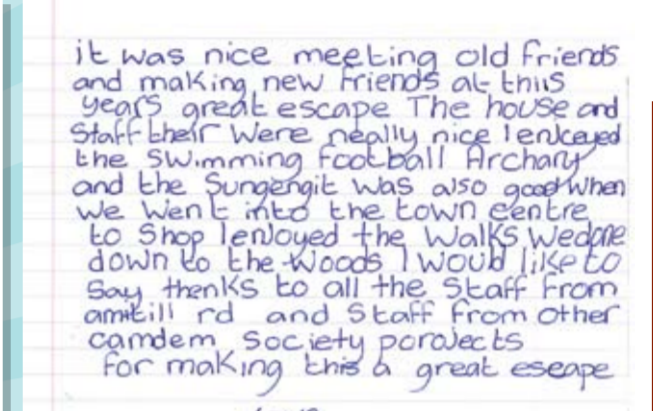 it was nice meeting old friends
and making new friends at thiis
years great escape The house and
Staff their were neally nice I enkeyed
the swimming football Archary
and the Sungengit was also good when
we went into the town centre
to Shop I enJoyed the Walks We done
down to the woods I would like to
Say thenks to all the Staff from
amitill rd and Staff from other
camdem Society porojects
for making this a great eseape